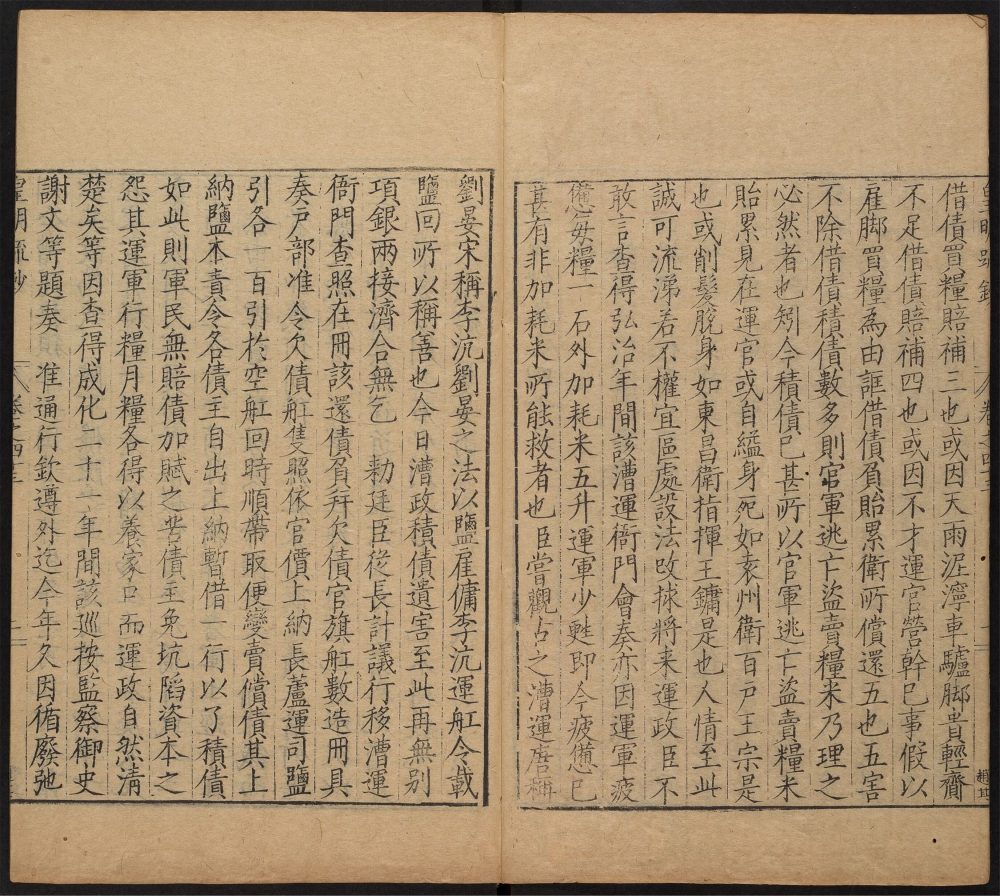 皇明疏鈔
卷之四十三
借債買糧賠補三也或因天雨泥濘車驢脚貴輕齎
不足借債賠補四也或因不才運官營幹已事假以
雇脚買糧爲由誆借債負貽累衛所償還五也五害
不除借債積債數多則官軍逃亡盜賣糧米乃理之
必然者也矧今積債已甚所以官軍逃亡盜賣糧米
貽累見在運官或自縊身死如袁州衛百戶王宗是
也或削髮脫身如東昌衛指揮王鏞是也人情至此
誠可流涕若不權宜區處設法改捄將来運政臣不
敢言查得弘治年間該漕運衙門會奏亦因運軍疲
憊每糧一石外加耗米五升運軍少甦即今疲憊已
甚有非加耗米所能救者也臣嘗觀占之漕運唐稱
劉晏宋稱李沆劉晏之法以鹽雇傭李沆運舡令載
鹽回所以稱善也今日漕政積債遺害至此再無別
項銀兩接濟合無乞 勑廷臣從長計議行移漕運
衙門查照在冊該還債負幷欠債官旗舡數造冊具
奏戶部准令欠債舡隻照依官價上納長蘆運司鹽
引各一百引於空舡回時順帶取便變賣償債其上
納鹽本責令各債主自出上納暫借一行以了積債
如此則軍民無賠債加賦之苦債主免坑陷資本之
怨其運軍行糧月糧各得以養家口而運政自然清
楚矣等因查得成化二十一年間該巡按監察御史
謝文等題奏 准通行欽遵外迄今年久因循廢弛
皇明疏鈔
卷之四十三